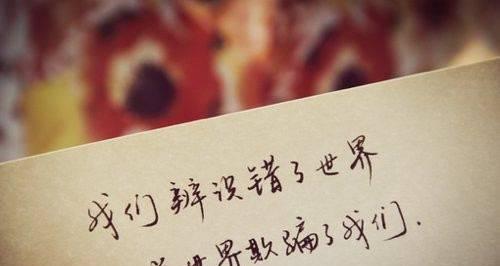 我们辨识错了世界
世界欺骗了我们.